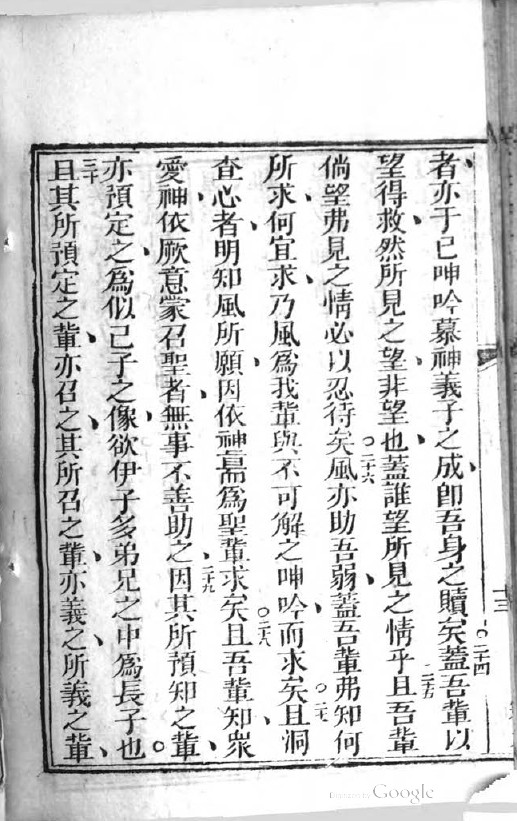 者亦于已呻吟慕神義子之成卽吾身之贖矣蓋吾輩以
二十四
望得救然所見之望非望也蓋誰望所見之情乎且吾輩
二十五
倘望弗見之情必以忍待矣風亦助吾弱蓋吾輩弗知何
二十六
二七
所求何宜求乃風爲我輩與不可解之呻吟而求矣且洞
查心者明知風所願因依神爲聖輩求矣且吾輩知衆
二十八
愛神依厥意蒙召聖者無事不善助之因其所預知之輩
二十九
亦預定之爲似己子之像欲伊子多弟兄之中爲長子也
三十
且其所預定之輩亦召之其所召之輩亦義之所義之輩
十三
Digitized by Google